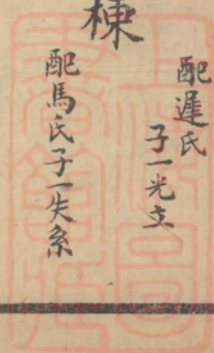 棟
配遲氏
子一光文
配馬氏子一失系